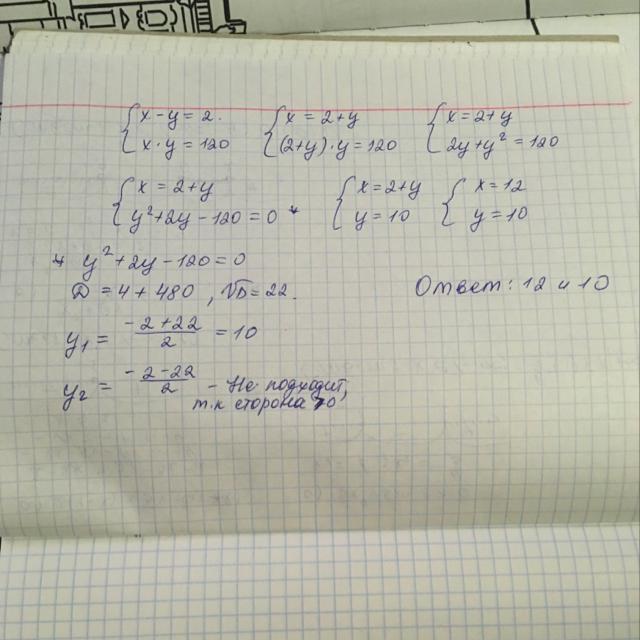 { x - y = 2. { x = 2+y { x = 2+y
{ x · y = 120 { (2+y)·y = 120 { 2y+y² = 120
{ x = 2+y { x = 2+y { x = 12
{ y²+2y-120 = 0 * { y = 10 { y = 10
* y²+2y-120=0
D = 4+480, √D = 22. Ответ: 12 и 10
y₁ = -2+22/2 = 10
y₂ = -2-22/2 - Не подходит,
т.к сторона >0